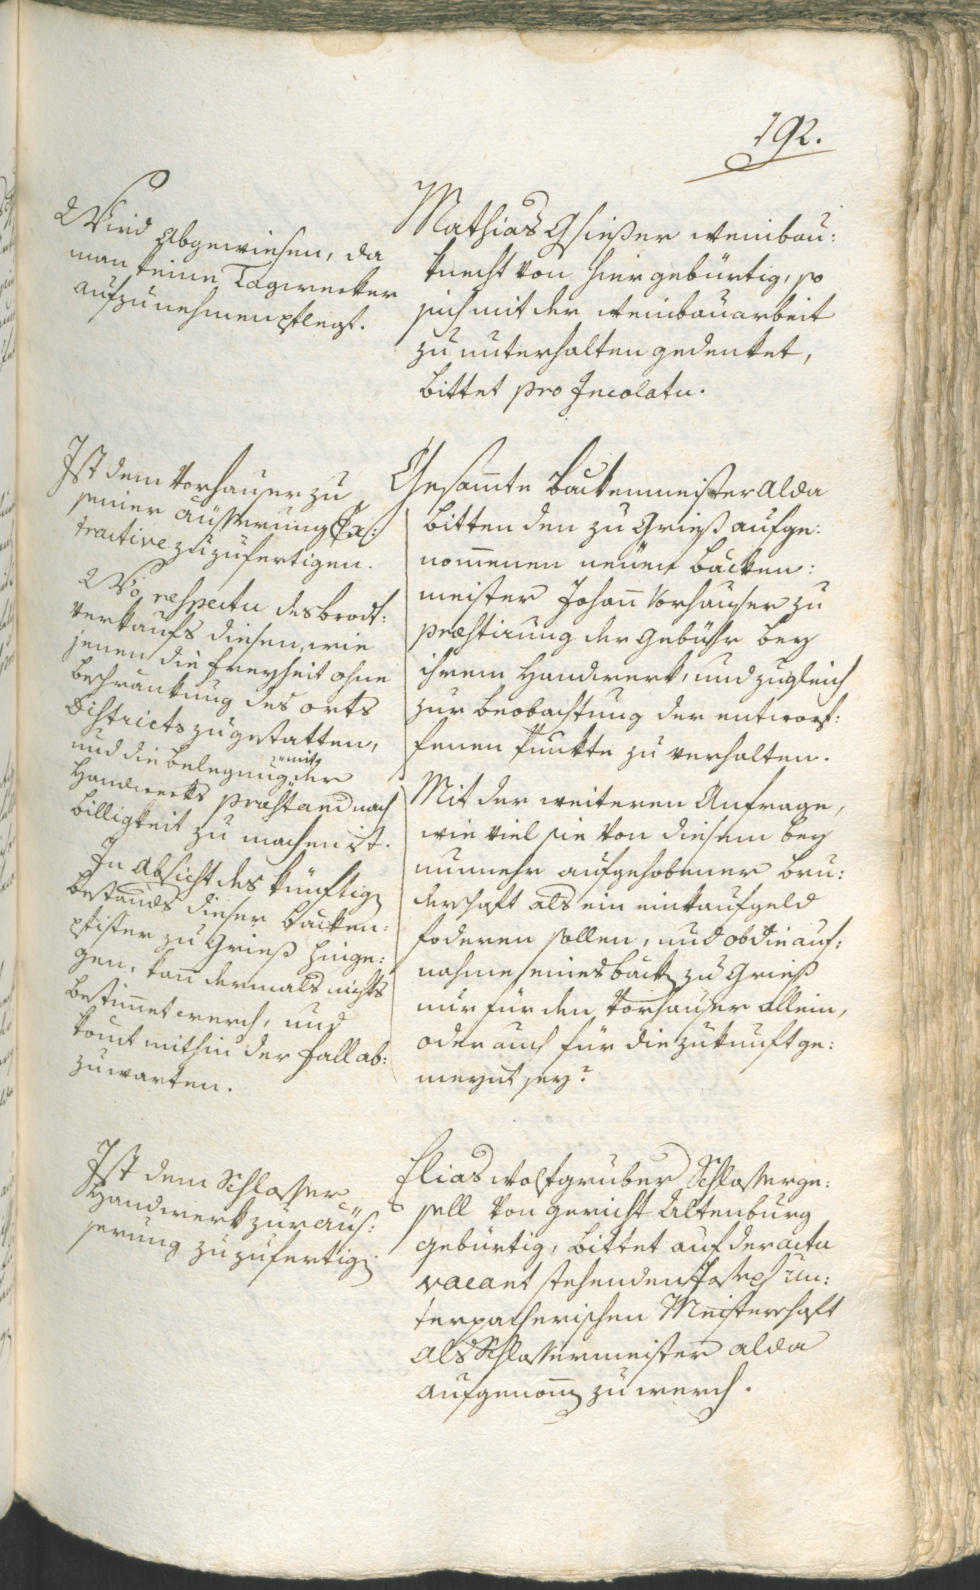 192.
Wird abgewiesen, da
man keine Tagwerker
aufzunehmen pflegt.
Mathias Gsießer weinbau:
knecht von hier gebürtig, so
sich mit der weinbauarbeit
zu unterhalten gedenket,
bittet pro Incolatu.
Ist dem Vorhauser zu
seiner äusserung Ex:
tractive zuzufertigen.
Wo respectu des brodt:
verkaufs diesen, wie
jenen die freyheit ohne
beschränkung des orts
Districts zu gestatten,
und die belegung mit der
Handwerks præstand nach
billigkeit zu machen ist.
In absicht des künftig
bestands dieser backen:
pfister zu Grieß hinge:
gen, kann dermals nichts
bestimmet werd, und
komt mithin der fall ab:
zuwarten.
Gesammte backenmeister alda
bitten den zu Grieß aufge:
nommenen neuen backen:
meister Johann Vorhauser zu
præstirung der gebühr bey
ihrem Handwerk, und zugleich
zur beobachtung der entworf:
fenen Punkte zu verhalten.
Mit der weiteren Anfrage,
wie viel sie von diesem bey
nunmehr aufgehobener bru:
derschaft als ein einkaufgeld
foderen sollen, und ob die auf:
nahme eines back zu Grieß
nur für den Vorhauser allein,
oder auch für die zukunft ge:
meynt sey?
Ist dem Schlosser
Handwerk zur äus:
serung zuzufertig.
Elias wolfgruber Schlosserge:
sell von gericht Altenburg
gebürtig, bittet auf der actu
vacant stehenden Joseph Un:
terpacherischen Meisterschaft
als Schlossermeister alda
aufgenomm zu werd.